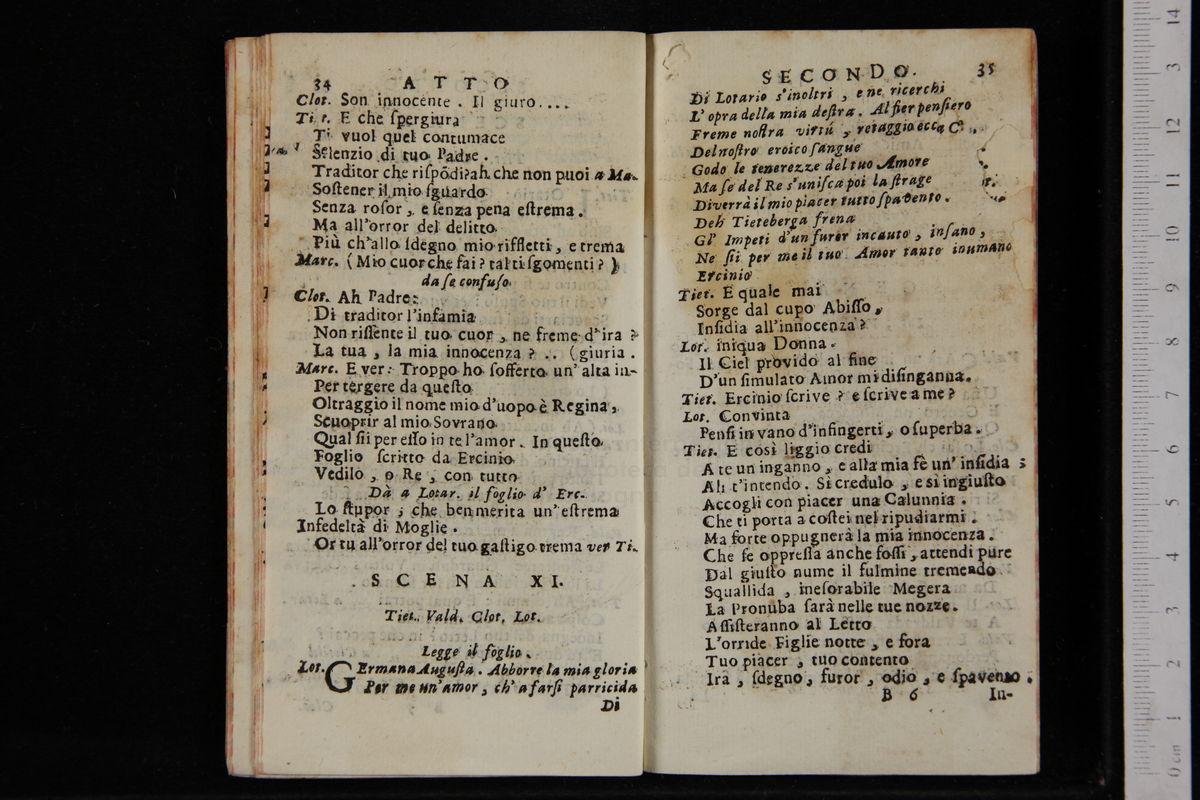 34 ATTO
Clot. Son innocente. Il giuro....
Tit. E che ſpergiura
Ti vuol quel contumace
Silenzio di tuo Padre.
Traditor che riſpõdi? ah che non puoi a Ma.
Soſtener il mio ſguardo
Senza roſor, e ſenza pena eſtrema.
Ma all'orror del delitto
Più ch'allo ſdegno mio riffletti, e trema
Marc. (Mio cuor che fai? tal ti ſgomenti?)
da ſe confuſo.
Clot. Ah Padre:
Di traditor l'infamia
Non riſſente il tuo cuor, ne freme d'ira?
La tua, la mia innocenza? .. (giuria.
Marc. E ver: Troppo ho ſofferto un' alta in-
Per tergere da queſto
Oltraggio il nome mio d'uopo è Regina,
Scuoprir al mio Sovrano
Qual ſii per eſſo in te l'amor. In queſto
Foglio ſcritto da Ercinio
Vedilo, o Re, con tutto
Dà a Lotar. il foglio d' Erc.
Lo ſtupor; che ben merita un' eſtrema
Infedeltà di Moglie.
Or tu all'orror del tuo gaſtigo trema ver Ti.
SCENA XI.
Tiet. Vald. Clot, Lot.
Legge il foglio.
Lot. GErmana Auguſta. Abborre la mia gloria
Per me un' amor, ch' a farſi parricida
Di
SECONDO. 35
Di Lotario s'inoltri, e ne ricerchi
L'opra della mia deſtra. Al fier penſiero
Freme noſtra virtú, retaggio ecca
Del noſtro eroico ſangue
Godo le tenerezze del tuo Amore
Ma ſe del Re s'uniſca poi la ſtrage
Diverrà il mio piacer tutto ſpavento.
Deh Tieteberga frena
Gl' Impeti d'un furor incauto, inſano,
Ne ſii per me il tuo Amor tanto inumano
Ercinio
Tiet. E quale mai
Sorge dal cupo Abiſſo,
Inſidia all'innocenza?
Lot. iniqua Donna.
Il Ciel provido al fine
D'un ſimulato Amor mi diſinganna.
Tiet. Ercinio ſcrive? e ſcrive a me?
Lot. Convinta
Penſi in vano d'infingerti, o ſuperba.
Tiet. E così liggio credi
A te un inganno, e alla mia fè un' inſidia;
Ah t'intendo. Si credulo, e si ingiuſto
Accogli con piacer una Calunnia.
Che ti porta a coſtei nel ripudiarmi.
Ma forte oppugnerà la mia innocenza.
Che ſe oppreſſa anche foſſi, attendi pure
Dal giuſto nume il fulmine tremendo
Squallida, ineſorabile Megera
La Pronuba ſarà nelle tue nozze.
Aſſiſteranno al Letto
L'orride Figlie notte, e fora
Tuo piacer, tuo contento
Ira, ſdegno, furor, odio, e ſpavento.
B 6 In-